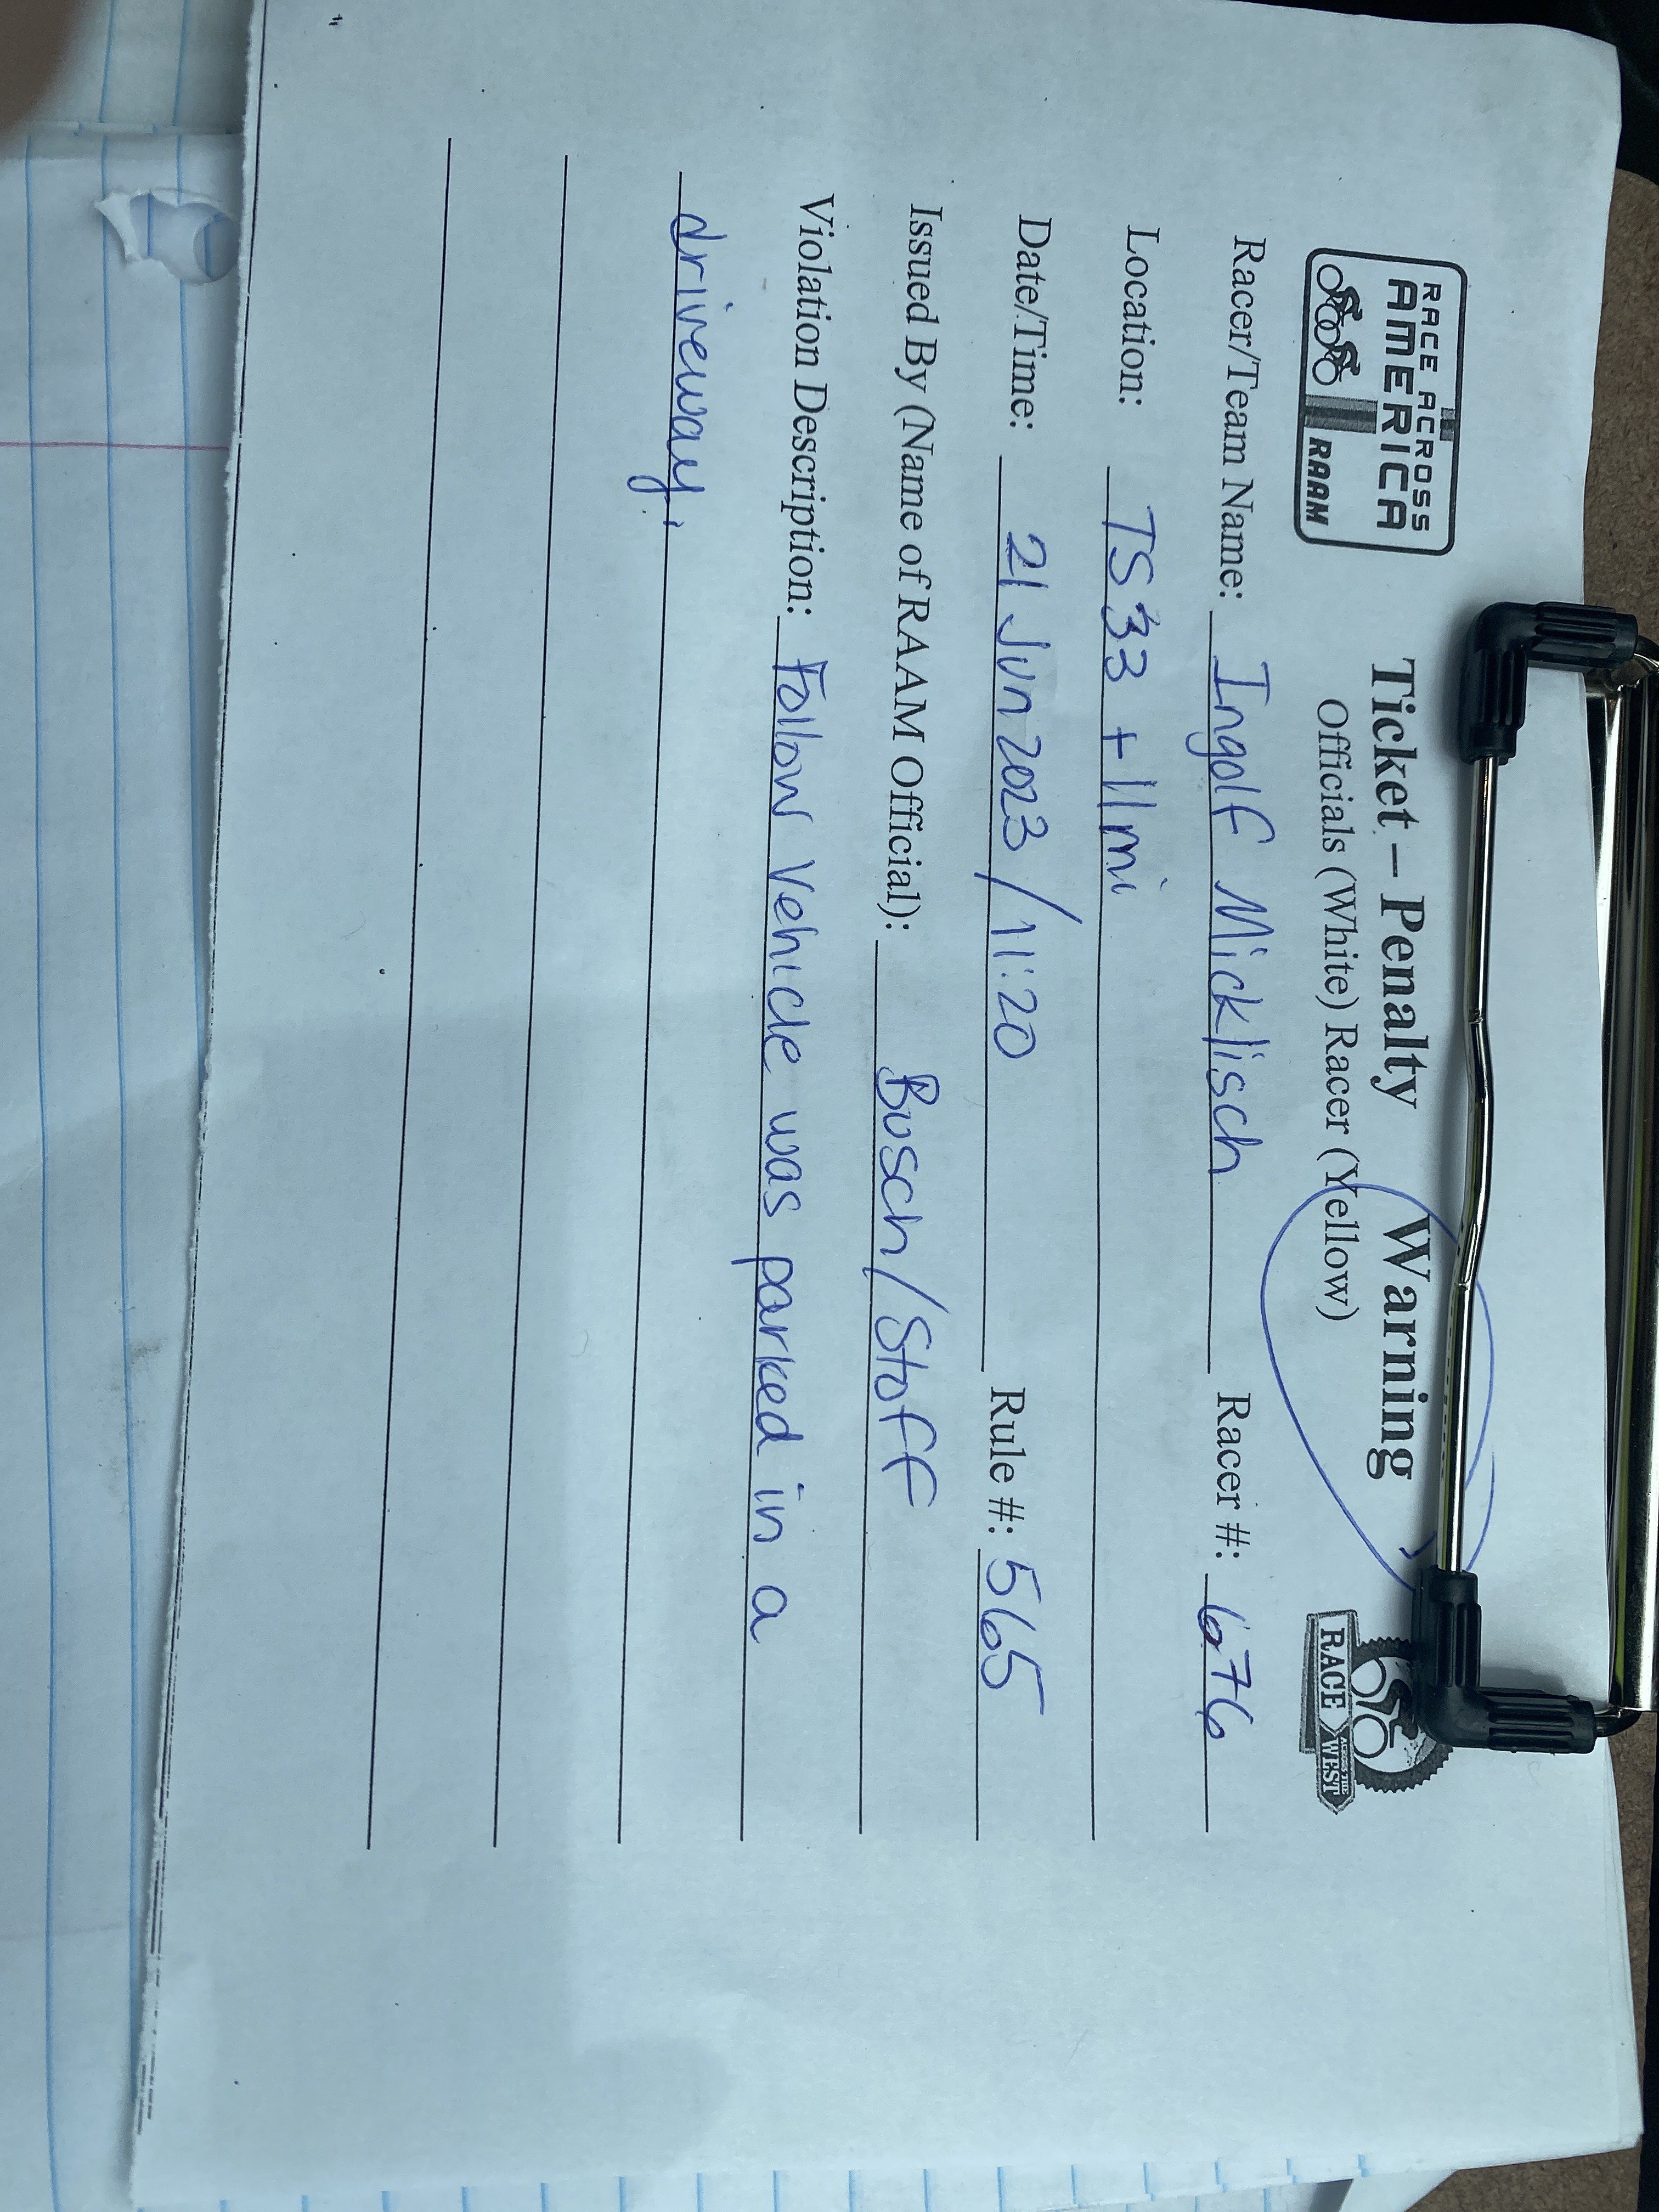 RACE ACROSS
AMERICA
RAAM
Ticket – Penalty Warning
Officials (White) Racer (Yellow)
RACE
WEST
Racer/Team Name: Ingolf Micklisch Racer #: 676
Location: TS 33 + 11 mi
Date/Time: 21 Jun 2023 / 11:20 Rule #: 565
Issued By (Name of RAAM Official): Busch / Stoff
Violation Description: Follow Vehicle was parked in a
driveway.